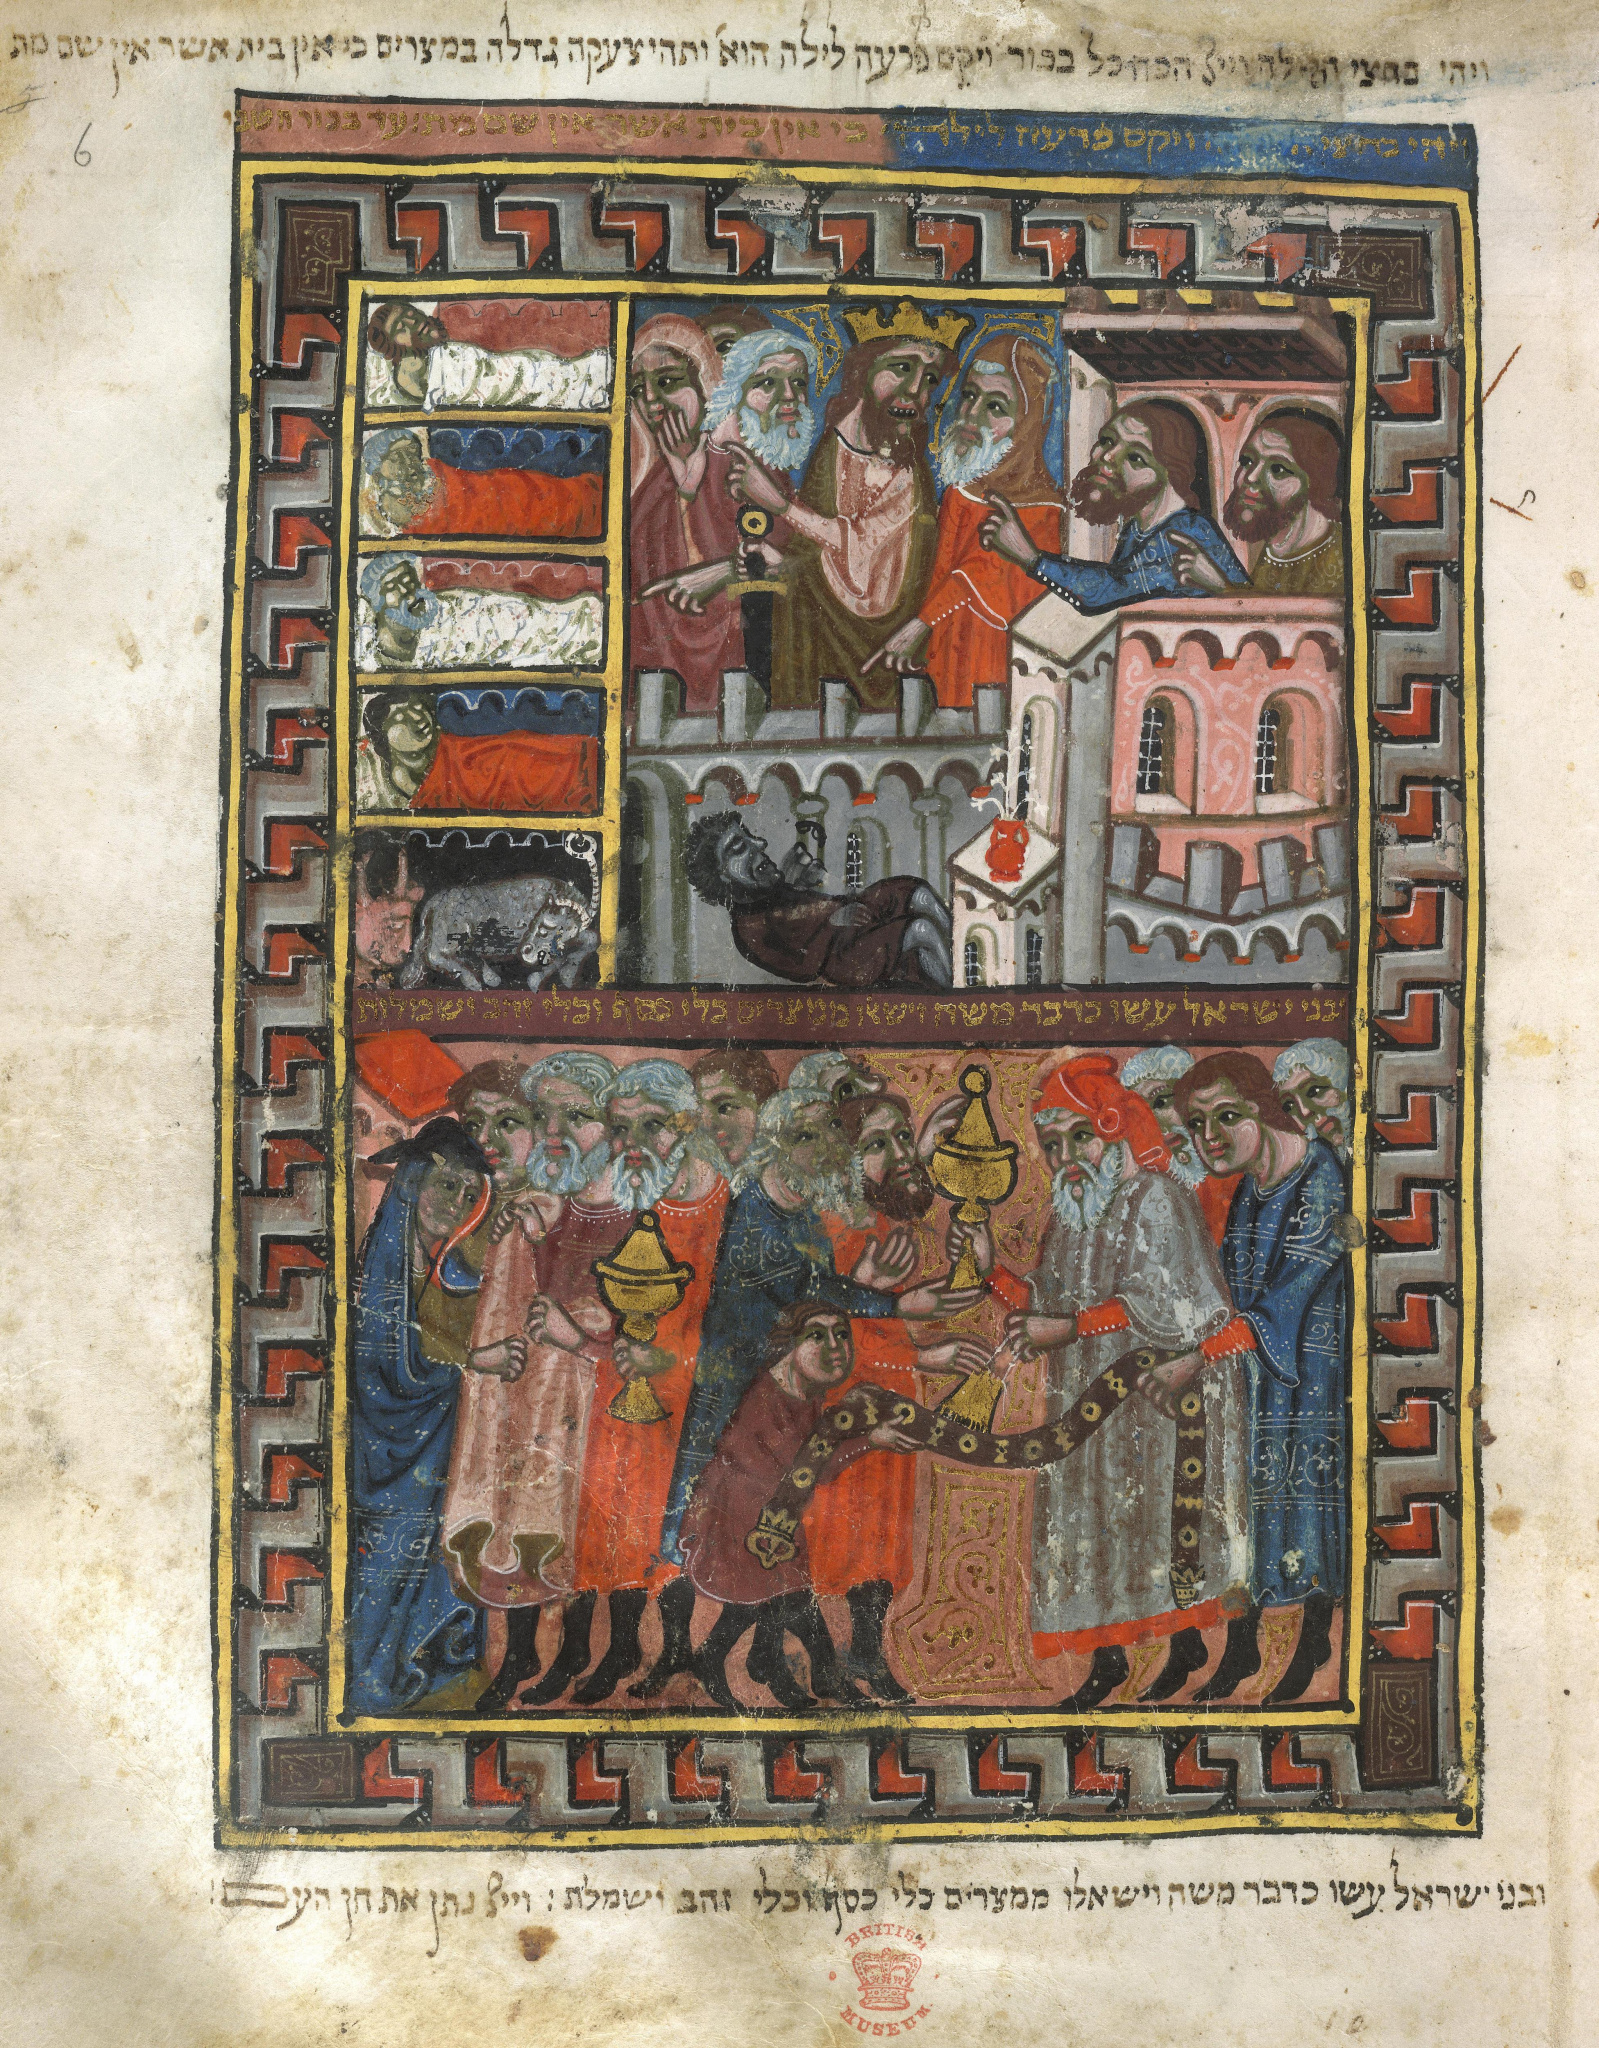 ויהי בחצי הלילה וייי הכה כל בכור ויקם פרעה לילה הוא ותהי צעקה גדלה במצרים כי אין בית אשר אין שם מת
ויהי ויקם פרעה לילה כי אין בית אשר אין שם מת
ובני ישראל עשו כדבר משה וישאלו ממצרים כלי כסף וכלי זהב ושמלות
ובני ישראל עשו כדבר משה וישאלו ממצרים כלי כסף וכלי זהב ושמלת : וייי נתן את חן העם :
6
BRITISH
MUSEUM